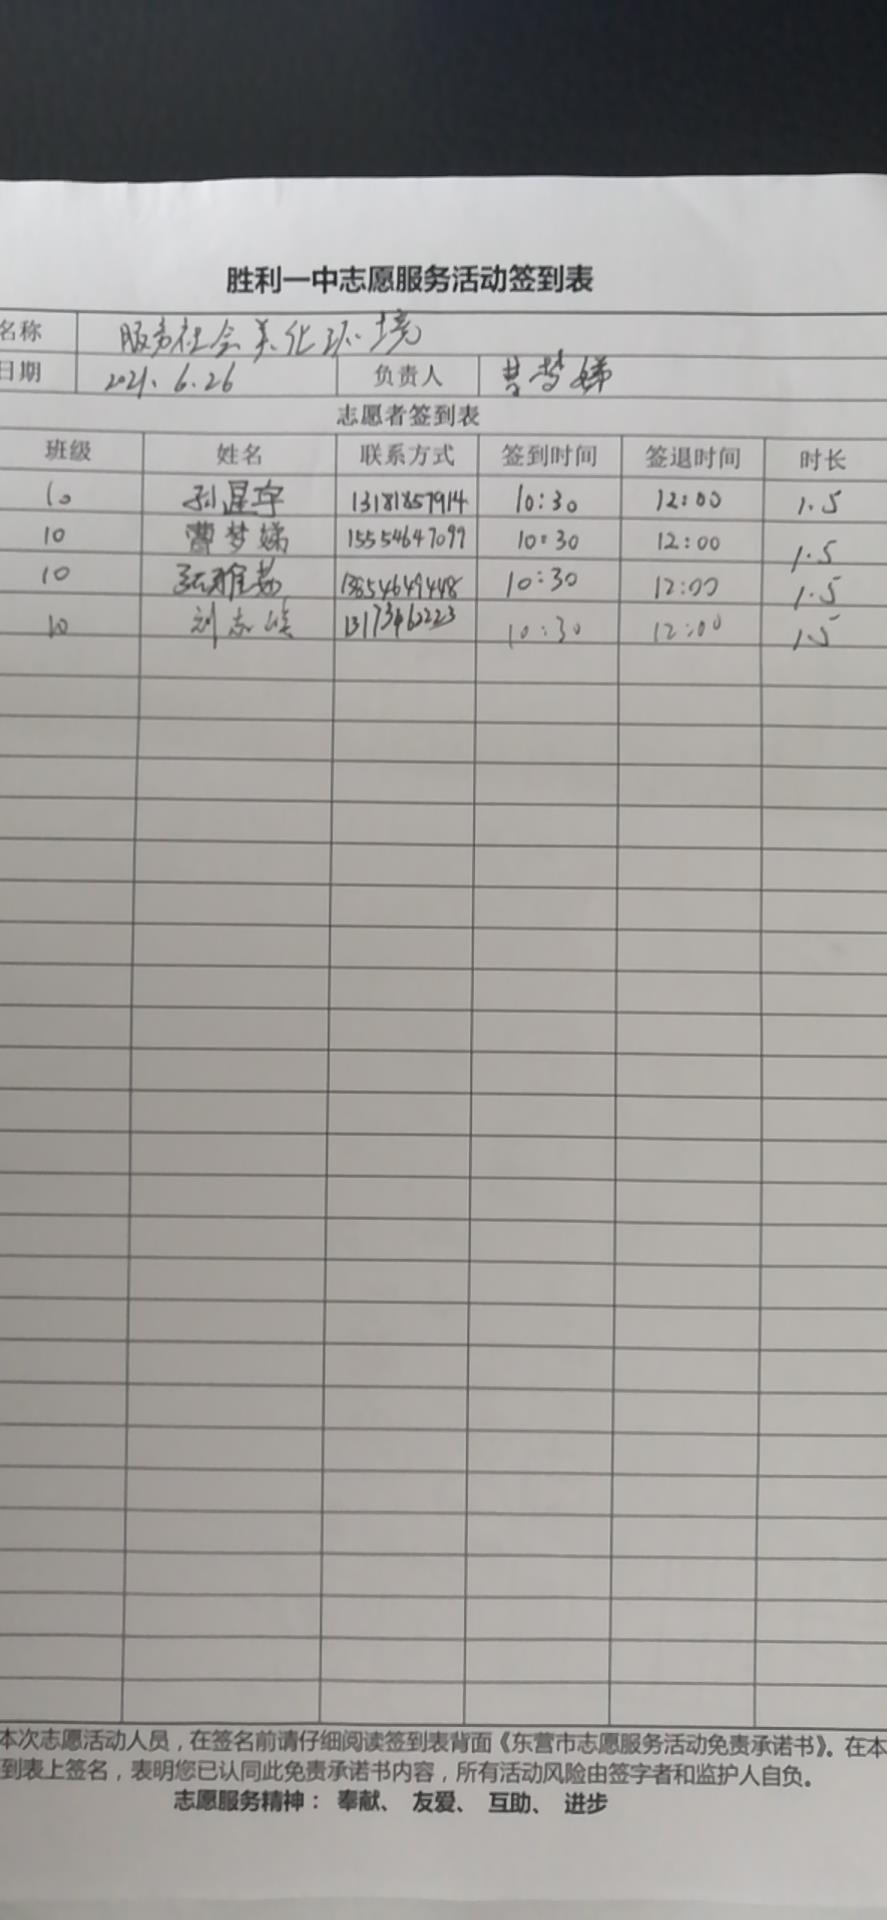 胜利一中志愿服务活动签到表
名称 服务社会美化环境
日期 2021.6.26 负责人 曹梦娣
志愿者签到表
班级 姓名 联系方式 签到时间 签退时间 时长
10 孙星宇 13181857914 10:30 12:00 1.5
10 曹梦娣 15554647099 10:30 12:00 1.5
10 张雅茹 13854649448 10:30 12:00 1.5
10 刘志 13173462223 10:30 12:00 1.5
本次志愿活动人员，在签名前请仔细阅读签到表背面《东营市志愿服务活动免责承诺书》。在本
到表上签名，表明您已认同此免责承诺书内容，所有活动风险由签字者和监护人自负。
志愿服务精神： 奉献、 友爱、 互助、 进步